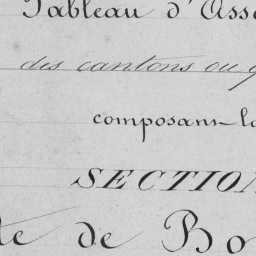 Tableau d'Ass
des cantons ou q
composant la
SECTION
de Bo